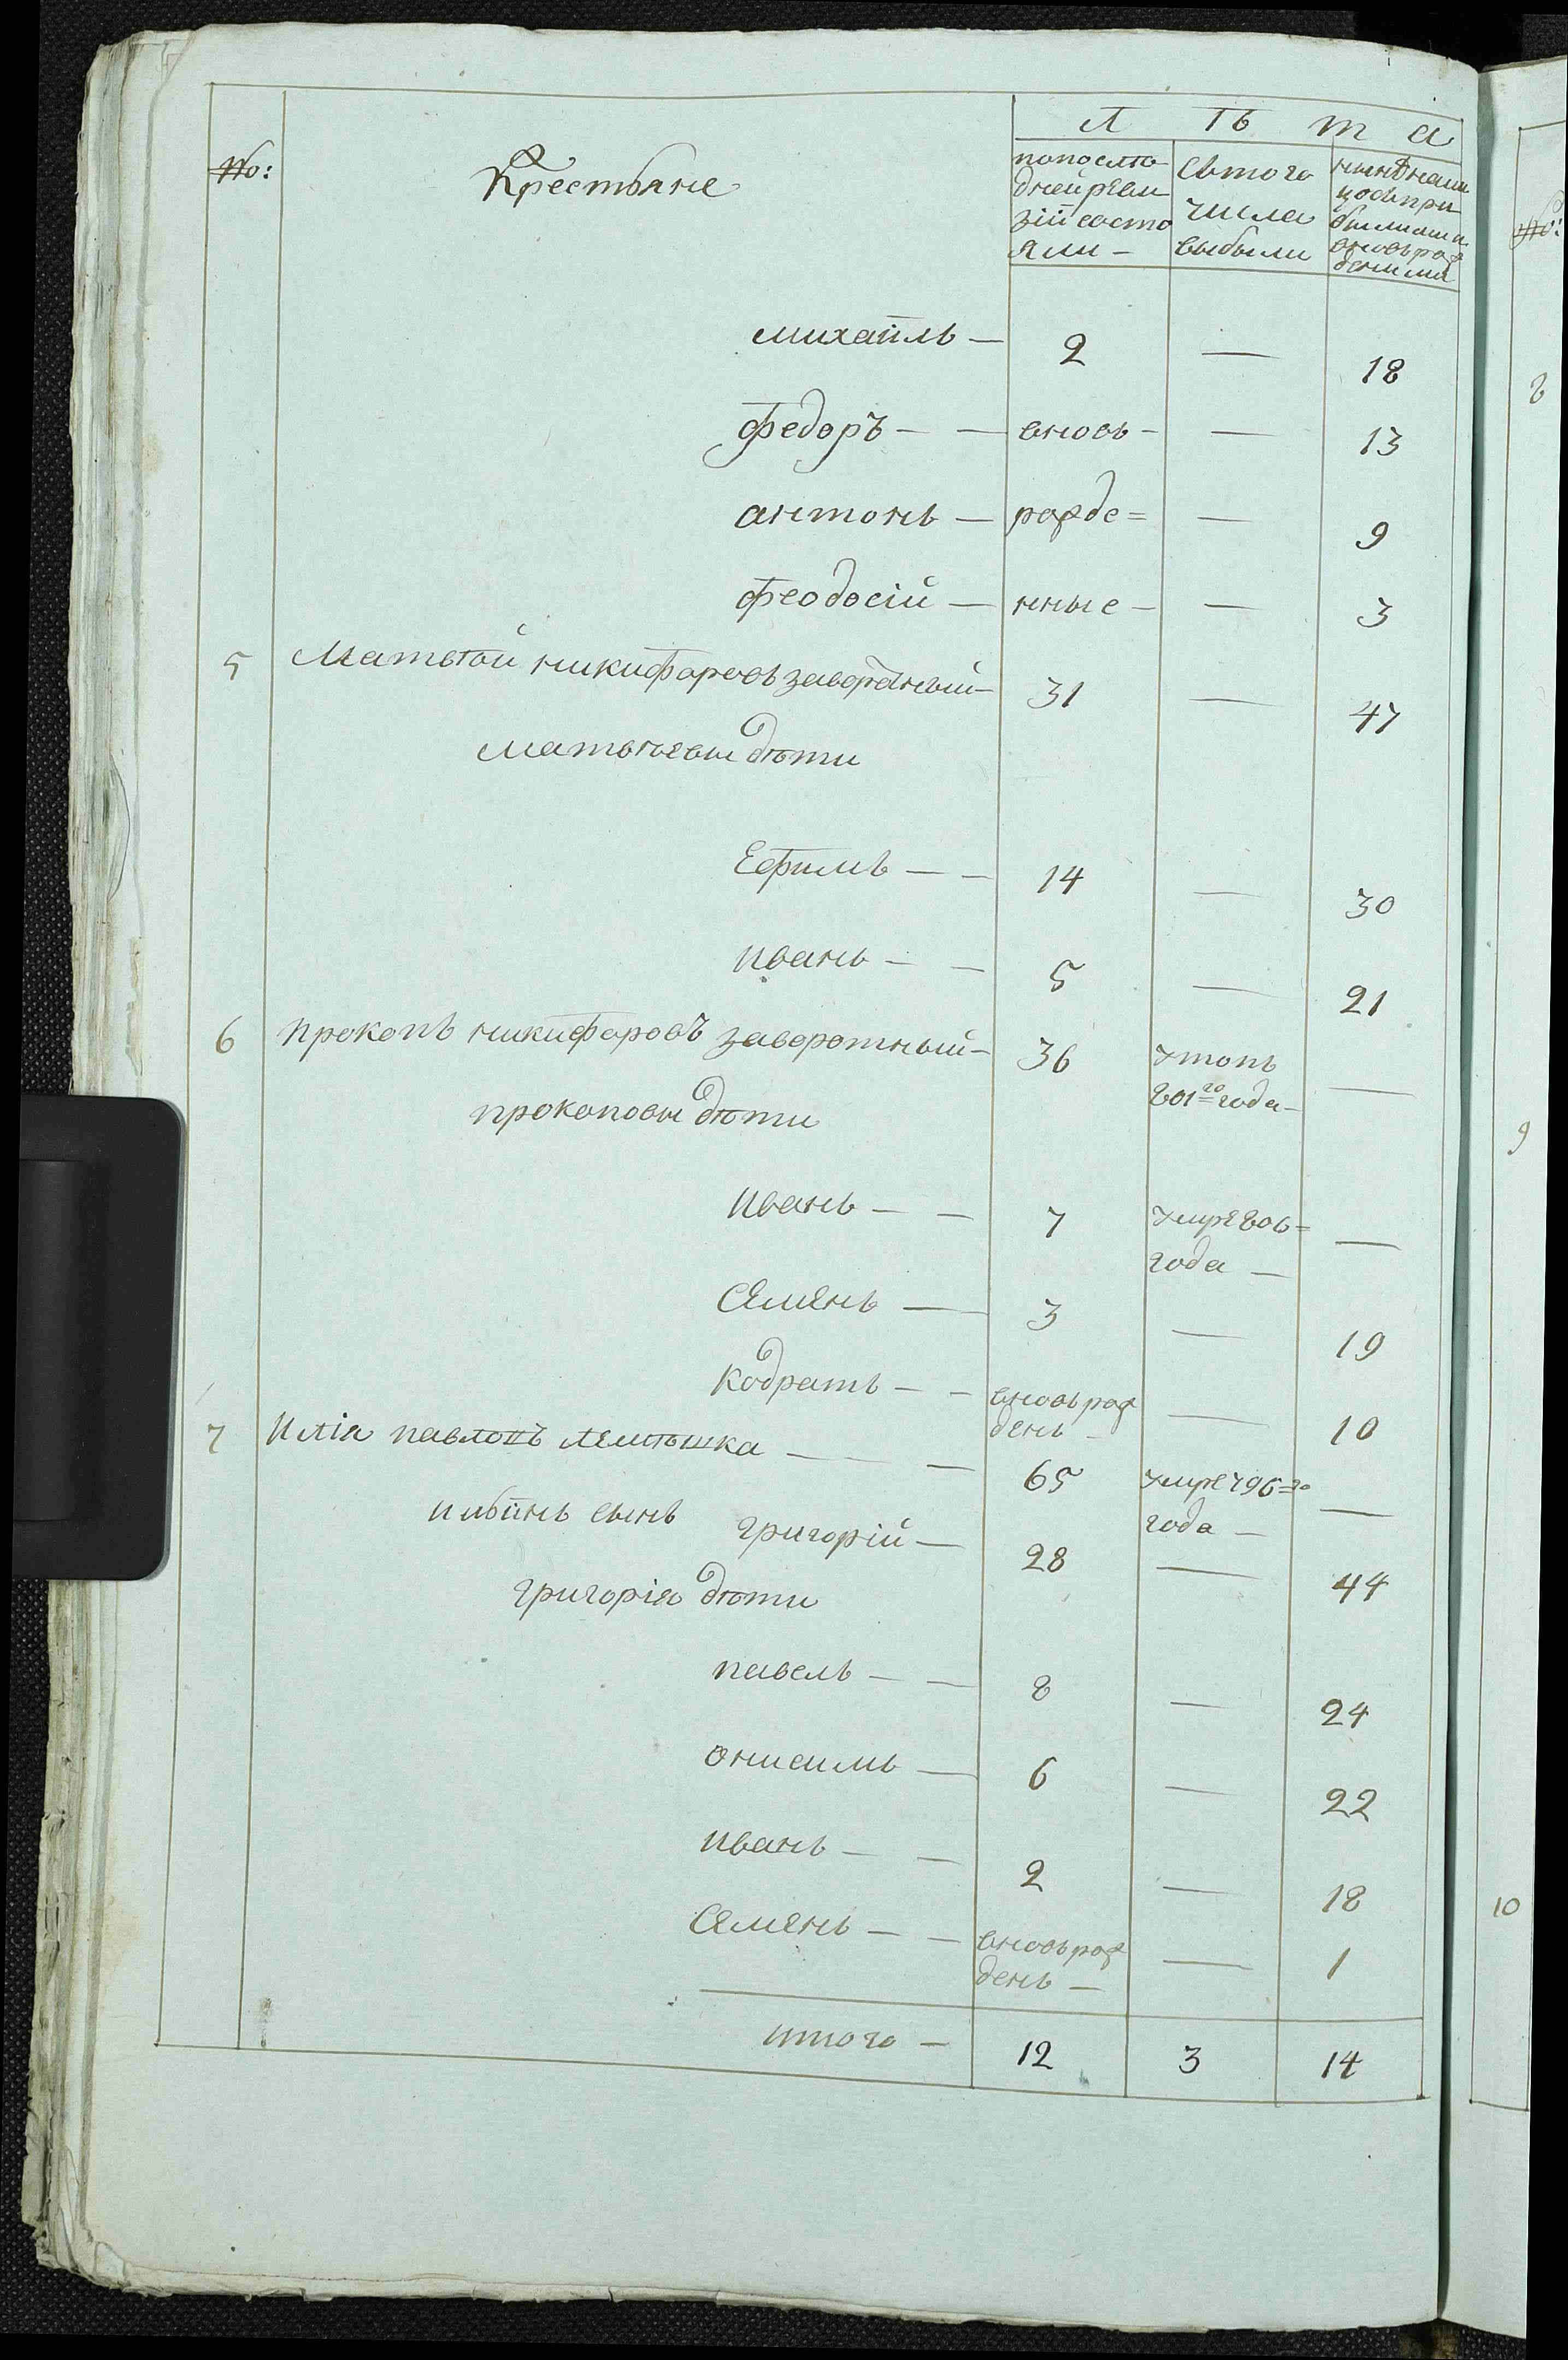 Лѣта
No: Крестьяне
попослѣ
дней реви
зіи состо
яли —
сътого
числа
выбыли
нынѣ на ли
цо съ при
былими и
вновь рож
деними
михаилъ — 2 — 18
федоръ — — вновь — — 13
антонъ — рожде= — 9
феодосій — нные — — 3
5 Матьѣй никифоровъ заворотный — 31 — 47
матьѣевы дѣти
Ефимъ — — 14 — 30
иванъ — — 5 — 21
6 прокопъ никифоровъ заворотный — 36 утопъ —
801го года —
прокоповы дѣти
иванъ — — 7 умре 806= —
года —
Семенъ — 3 — 19
кодратъ — — вновь рож
денъ — — 10
7 Иліа павловъ лемѣшка — — 65 умре 796=го —
года —
ильинъ сынъ григорій — 28 — 44
григорія дѣти
павелъ — — 8 — 24
онисимъ — 6 — 22
иванъ — — 2 — 18
Семенъ — — вновь рож
денъ — — 1
итого — 12 3 14
No:
8
9
10